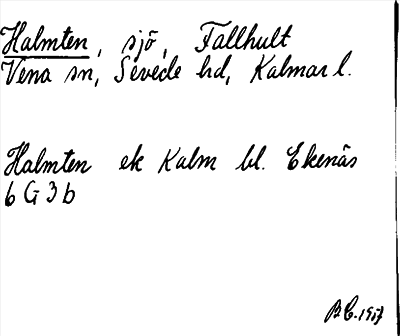 Halmten, sjö, Fallhult
Vena sn, Sevede hd, Kalmar l.
Halmten ek Kalm bl. Ekenäs
6 G 3 b